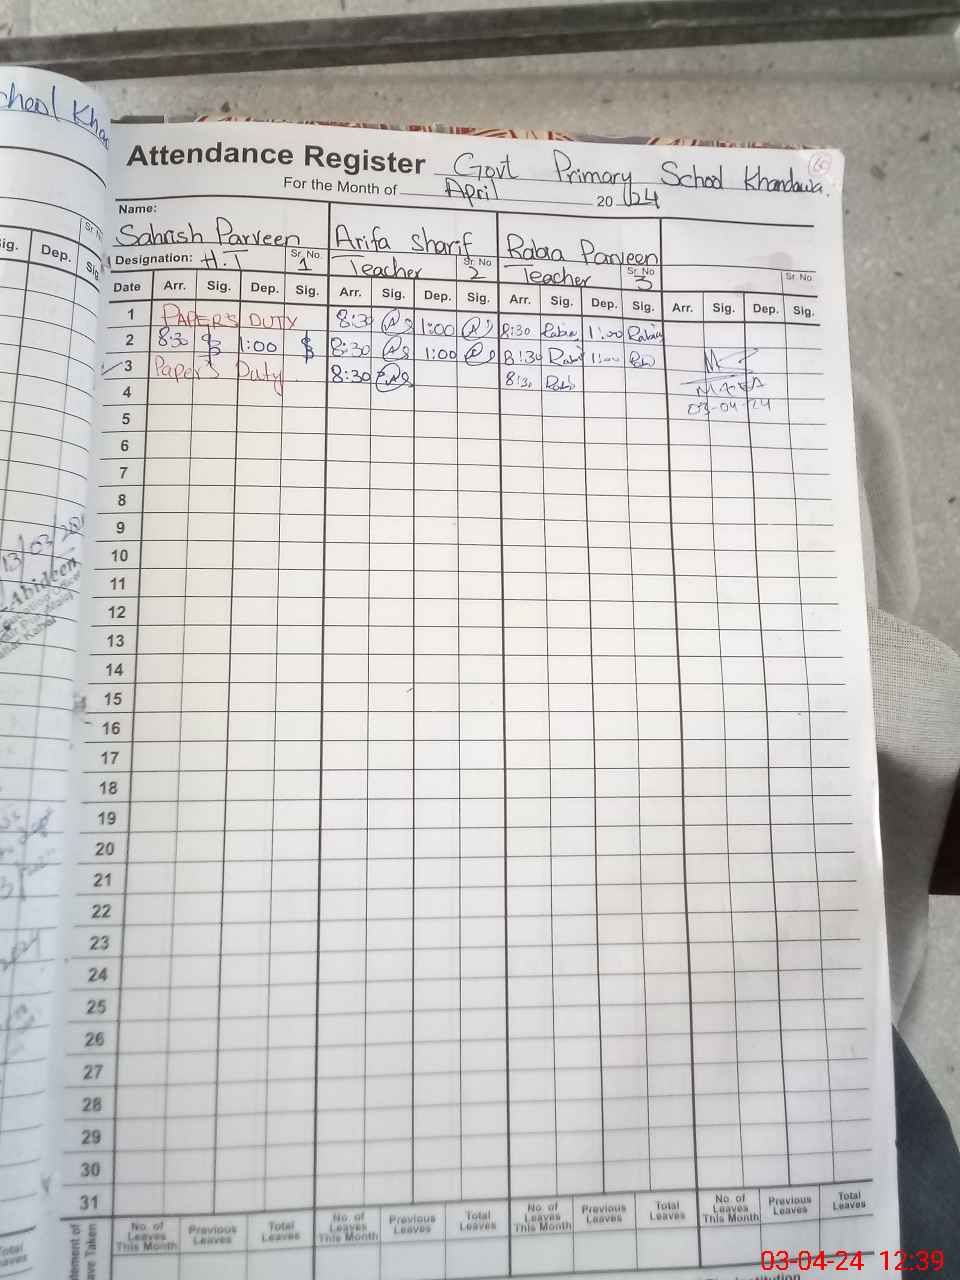 chool Kha
Attendance Register Govt Primary School Khandawa.
For the Month of April 2024
Name:
Sahrish Parveen Arifa Sharif Rabia Parveen
Designation: H.T Sr. No. 1 Teacher Sr. No. 2 Teacher Sr. No. 3 Sr. No.
Date Arr. Sig. Dep. Sig. Arr. Sig. Dep. Sig. Arr. Sig. Dep. Sig. Arr. Sig. Dep. Sig.
1 PAPER'S DUTY 8:30 1:00 8:30 Rabia 1:00 Rabia
2 8:30 1:00 8:30 1:00 8:30 Rabi 1:00
3 Paper's Duty 8:30 8:30
4 03-04-24
5
6
7
8
9
10
11
12
13
14
15
16
17
18
19
20
21
22
23
24
25
26
27
28
29
30
31
No. of Leaves This Month Previous Leaves Total Leaves No. of Leaves This Month Previous Leaves Total Leaves No. of Leaves This Month Previous Leaves Total Leaves No. of Leaves This Month Previous Leaves Total Leaves
ig. Dep. Sig
Sr. N
13/03/202
Abideen
03-04-24 12:39